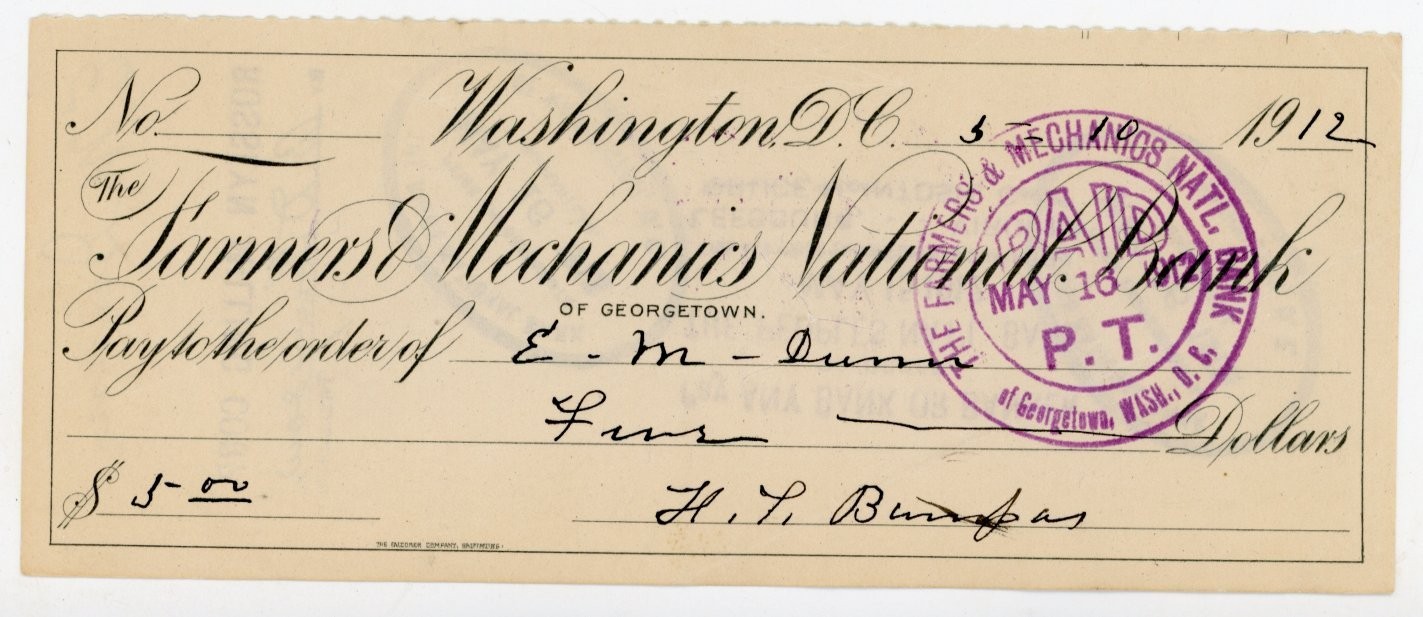 No. Washington, D.C. 5 - 10 1912
The
Farmers & Mechanics National Bank
OF GEORGETOWN.
Pay to the order of E - M - Dunn
Five Dollars
$ 5 00
H. T. Bumpas
THE FALCONER COMPANY, BALTIMORE.
THE FARMERS & MECHANICS NATL. BANK
PAID
MAY 16 1912
P. T.
of Georgetown, WASH., D. C.